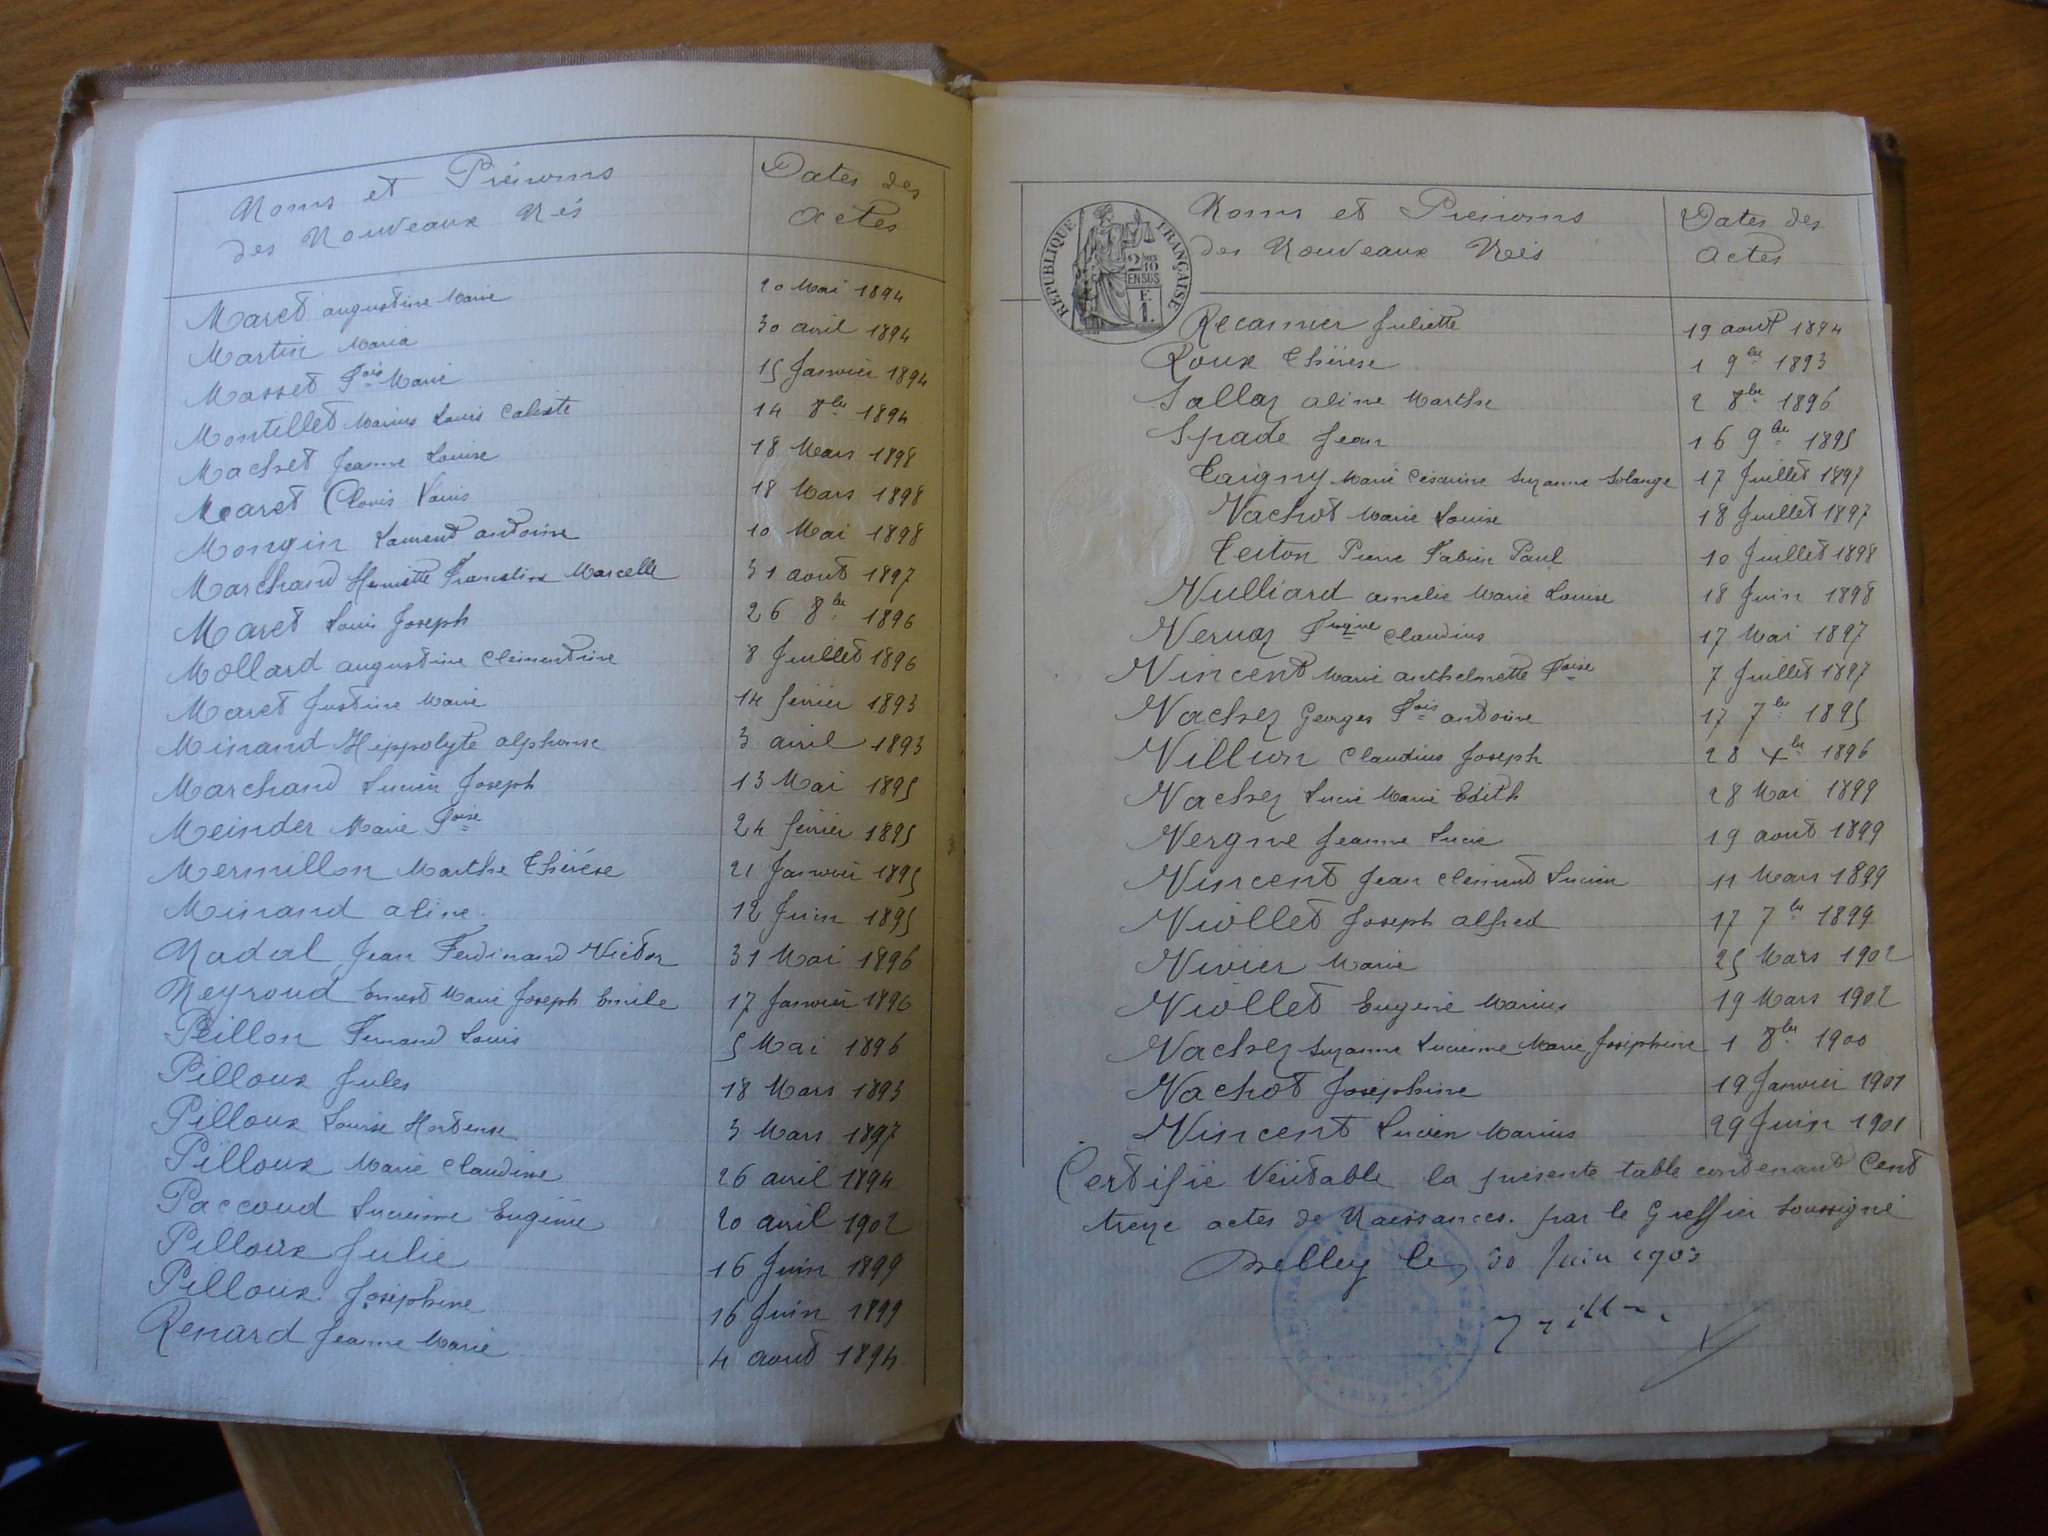 Noms et Prénoms
des Nouveaux Nés
Dates des
Actes
Maret augustine Marie 20 Mai 1894
Martin Maria 30 avril 1894
Masset Fois Marie 15 Janvier 1894
Montillet Marius Louis Calixte 14 8bre 1894
Machet Jeanne Louise 18 Mars 1898
Maret Clovis Louis 18 Mars 1898
Mongin Laurent antoine 10 Mai 1898
Marchand Henriette Francline Marcelle 31 aout 1897
Maret Louis Joseph 26 8bre 1896
Mollard augustine Clémentine 8 Juillet 1896
Maret Justine Marie 14 février 1893
Minand Hippolyte alphonse 3 avril 1893
Marchand Lucien Joseph 13 Mai 1895
Meinder Marie Foise 24 février 1895
Mermillon Marthe Thérèse 21 Janvier 1895
Minand aline. 12 Juin 1895
Nadal Jean Ferdinand Victor 31 Mai 1896
Neyroud Ernest Marie Joseph Emile 17 Janvier 1896
Peillon Fernand Louis 5 Mai 1896
Pilloux Jules 18 Mars 1893
Pilloux Louise Hortense 3 Mars 1897
Pilloux Marie Claudine 26 avril 1894
Paccoud Lucienne Eugénie 20 avril 1902
Pilloux Julie 16 Juin 1899
Pilloux Joséphine 16 Juin 1899
Renard Jeanne Marie 4 aout 1894
RÉPUBLIQUE FRANÇAISE
2/10
EN SUS
F.
1.
Noms et Prénoms
des Nouveaux Nés
Dates des
Actes
Recamier Juliette 19 aout 1894
Roux Thérèse 1 9bre 1893
Sallaz aline Marthe 2 8bre 1896
Spade Jean 16 9bre 1895
Taigny Marie Césarine Suzanne Solange 17 Juillet 1897
Vachot Marie Louise 18 Juillet 1897
Teiton Pierre Fabien Paul 10 Juillet 1898
Vulliard amélie Marie Louise 18 Juin 1898
Vernaz Fréque Claudius 17 Mai 1897
Vincent Marie anthelmette Foise 7 Juillet 1897
Vachez Georges Fois antoine 17 7bre 1895
Villion Claudius Joseph 28 Xbre 1896
Vachez Lucie Marie Edith 28 Mai 1899
Vergne Jeanne Lucie 19 aout 1899
Vincent Jean Clément Lucien 11 Mars 1899
Viollet Joseph alfred 17 7bre 1899
Vivier Marie 25 Mars 1902
Viollet Eugène Marius 19 Mars 1902
Vachez Suzanne Lucienne Marie Joséphine 1 8bre 1900
Vachot Joséphine 19 Janvier 1901
Vincent Lucien Marius 29 Juin 1901
Certifié Véritable la présente table contenant Cent
treize actes de Naissances. par le Greffier Soussigné
Belley le 30 Juin 1903